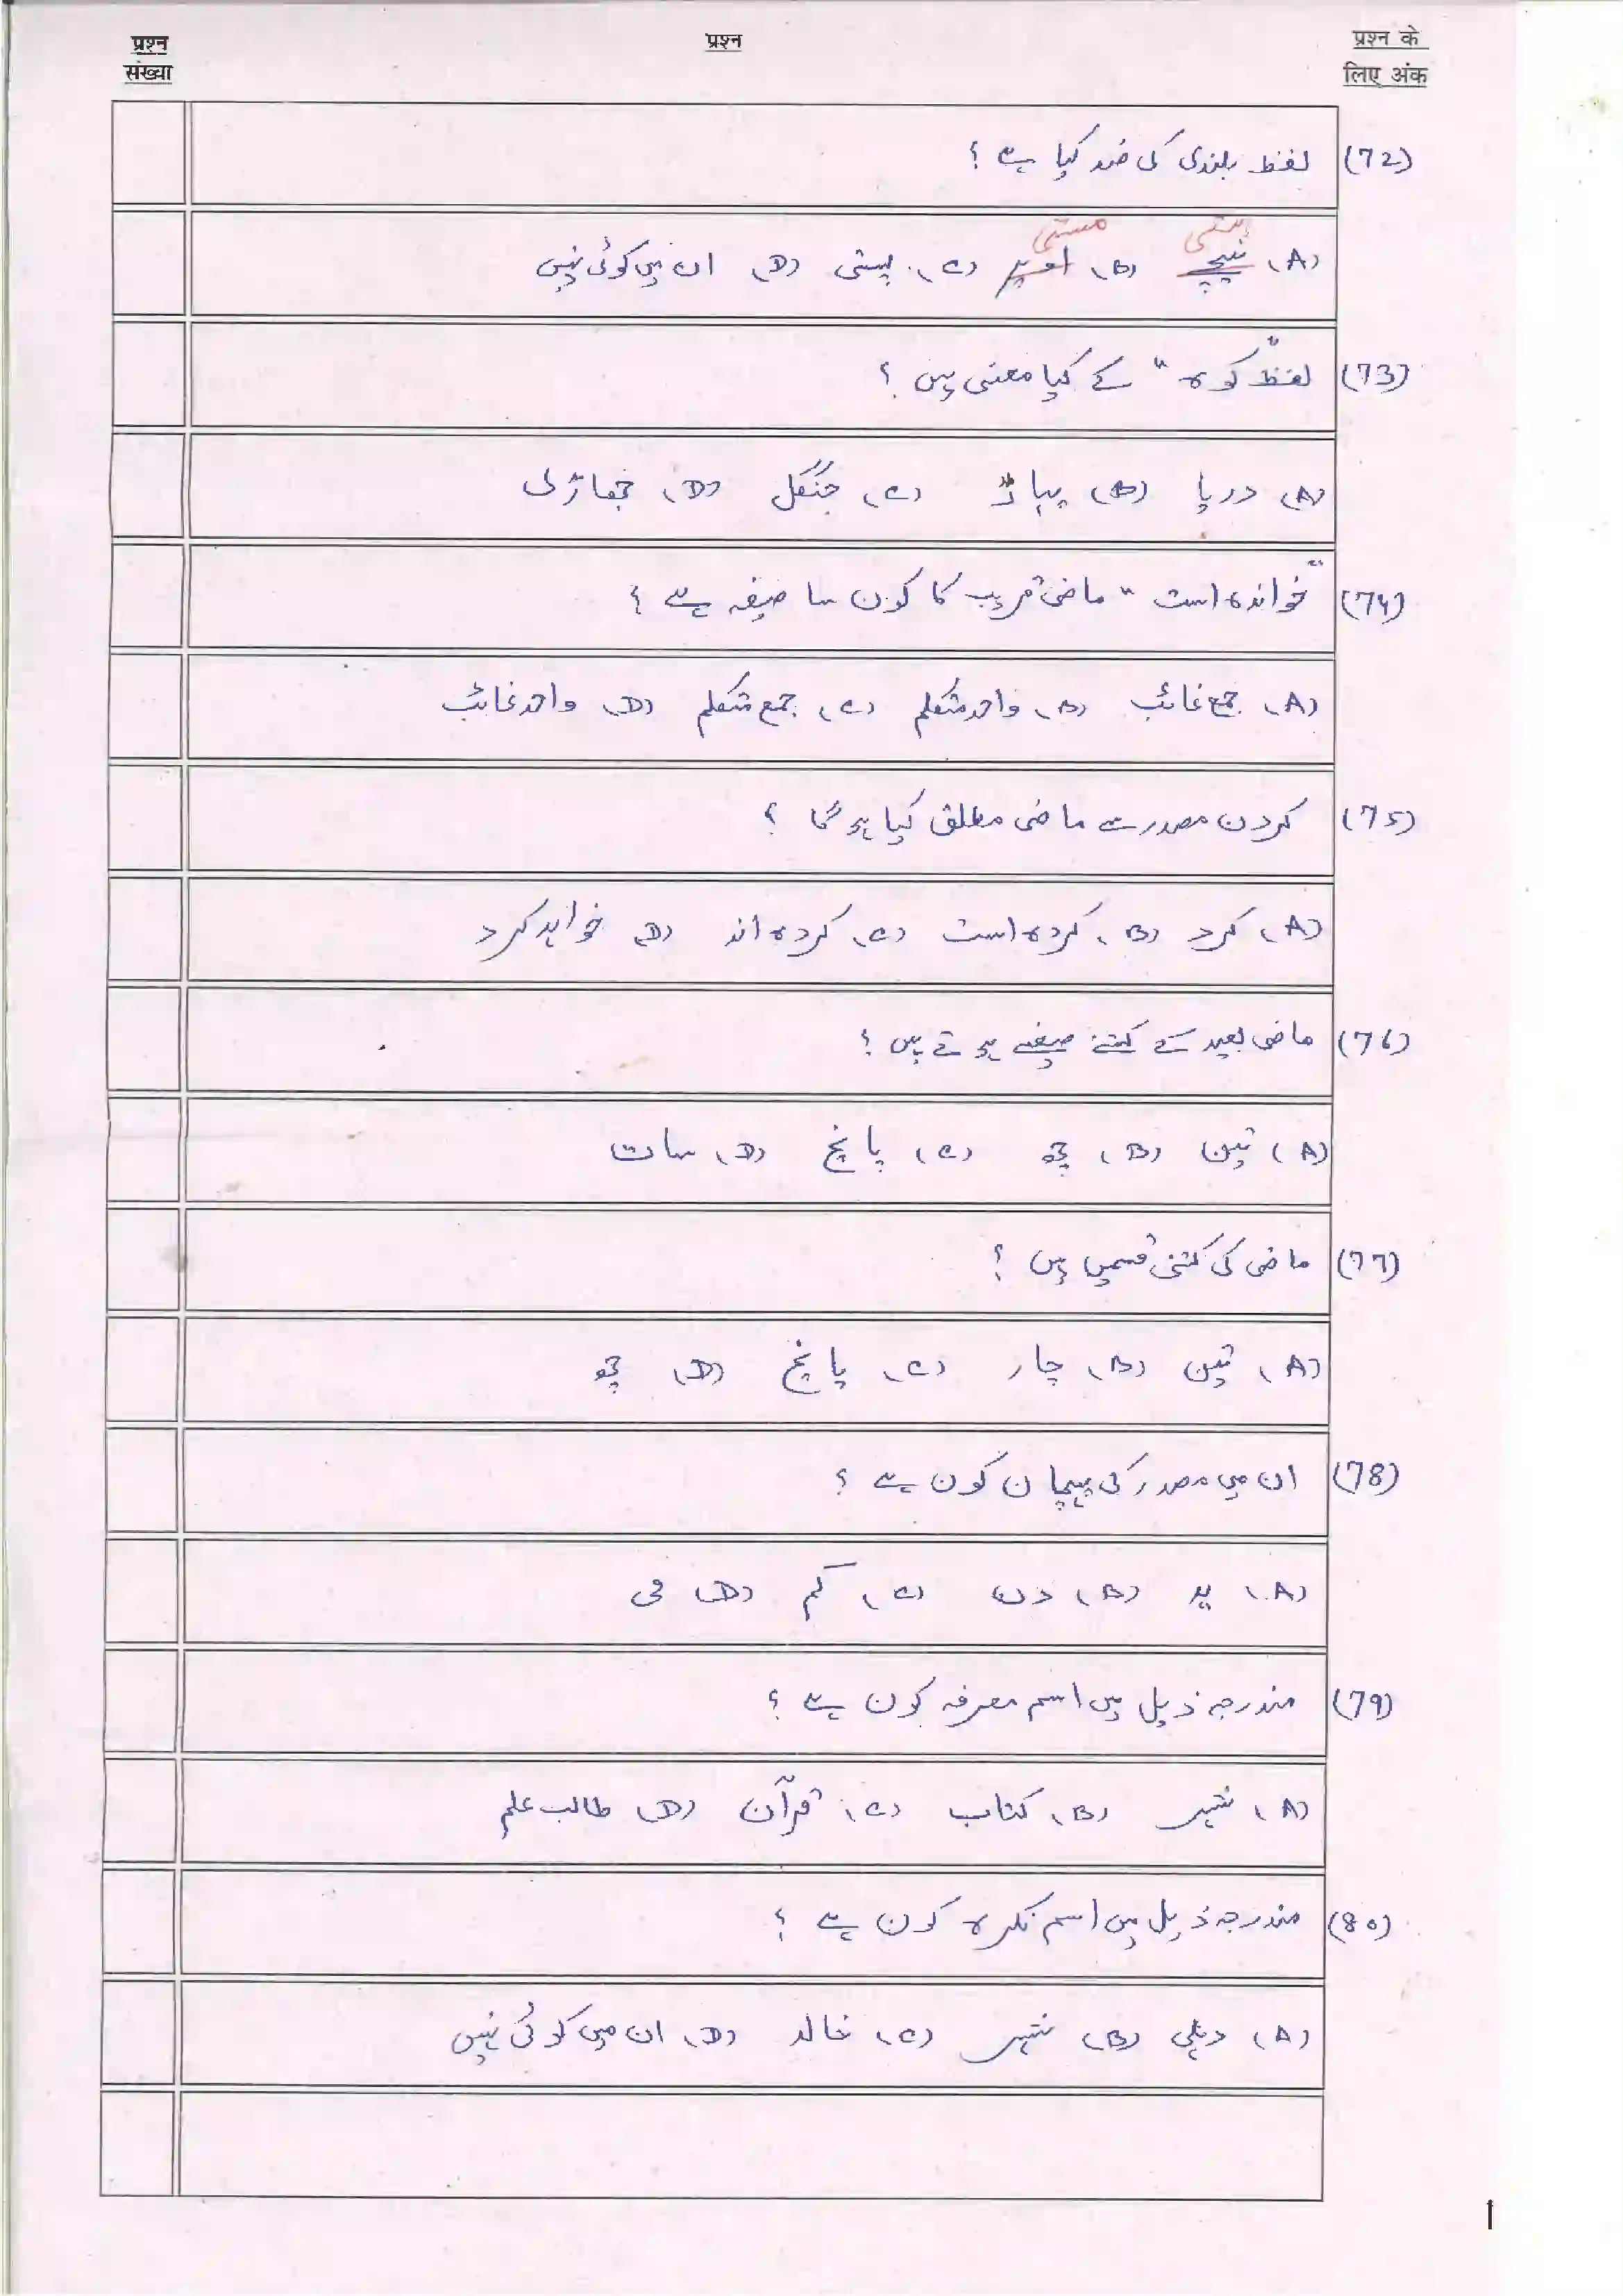 प्रश्न संख्या
प्रश्न
प्रश्न के लिए अंक
(72) لفظ بلندی کی ضد کیا ہے ؟
مستی
(A) نیچے (B) اوپر (C) پستی (D) ان میں کوئی نہیں
(73) لفظ "کوہ" کے کیا معنی ہیں ؟
(A) دریا (B) پہاڑ (C) جنگل (D) جھاڑی
(74) "خواندہ است" ماضی قریب کا کون سا صیغہ ہے ؟
(A) جمع غائب (B) واحد متکلم (C) جمع متکلم (D) واحد غائب
(75) کردن مصدر سے ماضی مطلق کیا ہو گا ؟
(A) کرد (B) کردہ است (C) کردہ اند (D) خواہد کرد
(76) ماضی بعید کے کتنے صیغے ہوتے ہیں ؟
(A) تین (B) چھ (C) پانچ (D) سات
(77) ماضی کی کتنی قسمیں ہیں ؟
(A) تین (B) چار (C) پانچ (D) چھ
(78) ان میں مصدر کی پہچان کون ہے ؟
(A) ید (B) دن (C) کم (D) می
(79) مندرجہ ذیل میں اسم معرفہ کون ہے ؟
(A) شہر (B) کتاب (C) قرآن (D) طالب علم
(80) مندرجہ ذیل میں اسم نکرہ کون ہے ؟
(A) دہلی (B) شہر (C) خالد (D) ان میں کوئی نہیں